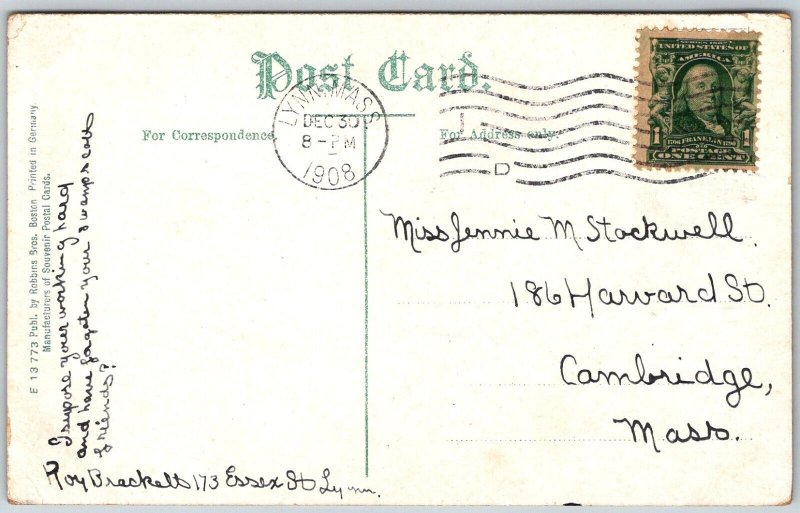 Post Card.
For Correspondence.
For Address only.
LYNN, MASS.
DEC 30
8 - PM
1908
D
SERIES 1902
UNITED STATES OF
AMERICA
1 1
1706 FRANKLIN 1790
POSTAGE
ONE CENT
E 13773 Publ. by Robbins Bros. Boston Printed in Germany
Manufacturers of Souvenir Postal Cards.
I supose your working hard
and have forgaten your Swampscott
friends?
Roy Brackett 173 Essex St Lynn.
Miss Jennie M Stockwell.
186 Harvard St.
Cambridge,
Mass.